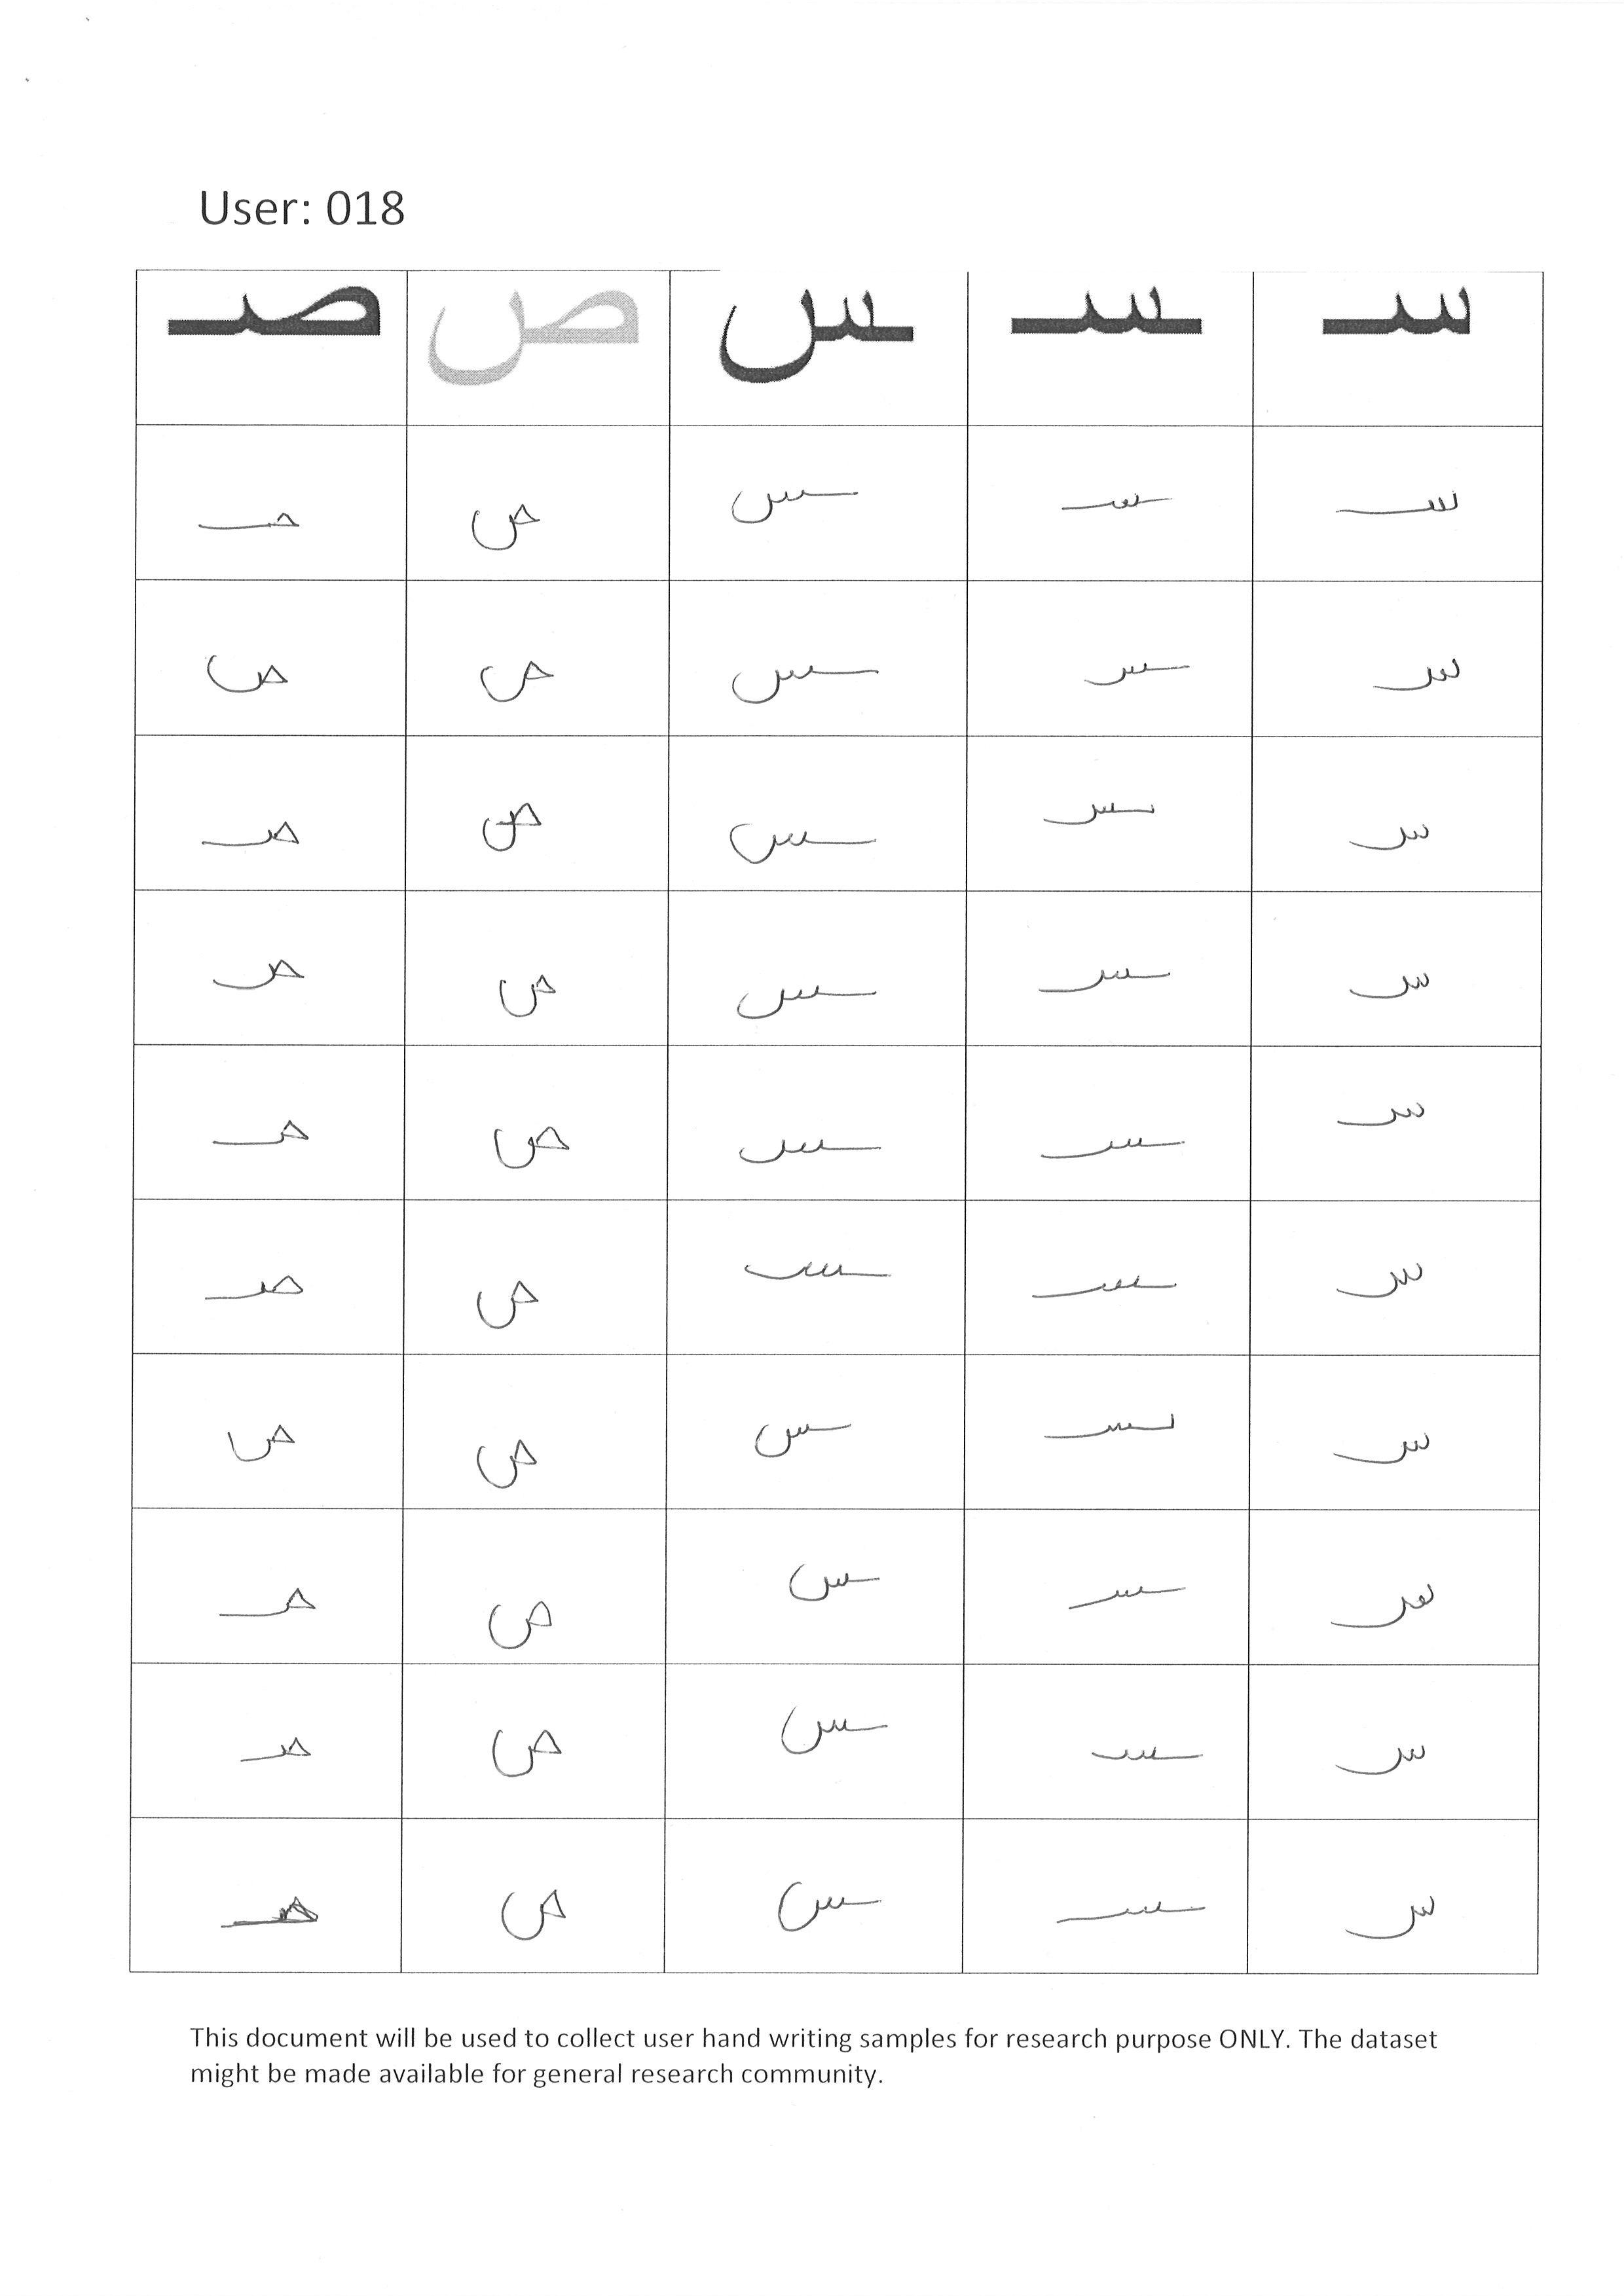 User: 018
سـ ـسـ ـس ص صـ
سـ ـسـ ـس ص صـ
سـ ـسـ ـس ص ص
سـ ـسـ ـس ص صـ
سـ ـسـ ـس ص صـ
سـ ـسـ ـس ص صـ
سـ ـسـ ـس ص صـ
سـ ـسـ ـس ص ص
سـ ـسـ ـس ص صـ
سـ ـسـ ـس ص صـ
سـ ـسـ ـس ص صـ
This document will be used to collect user hand writing samples for research purpose ONLY. The dataset
might be made available for general research community.